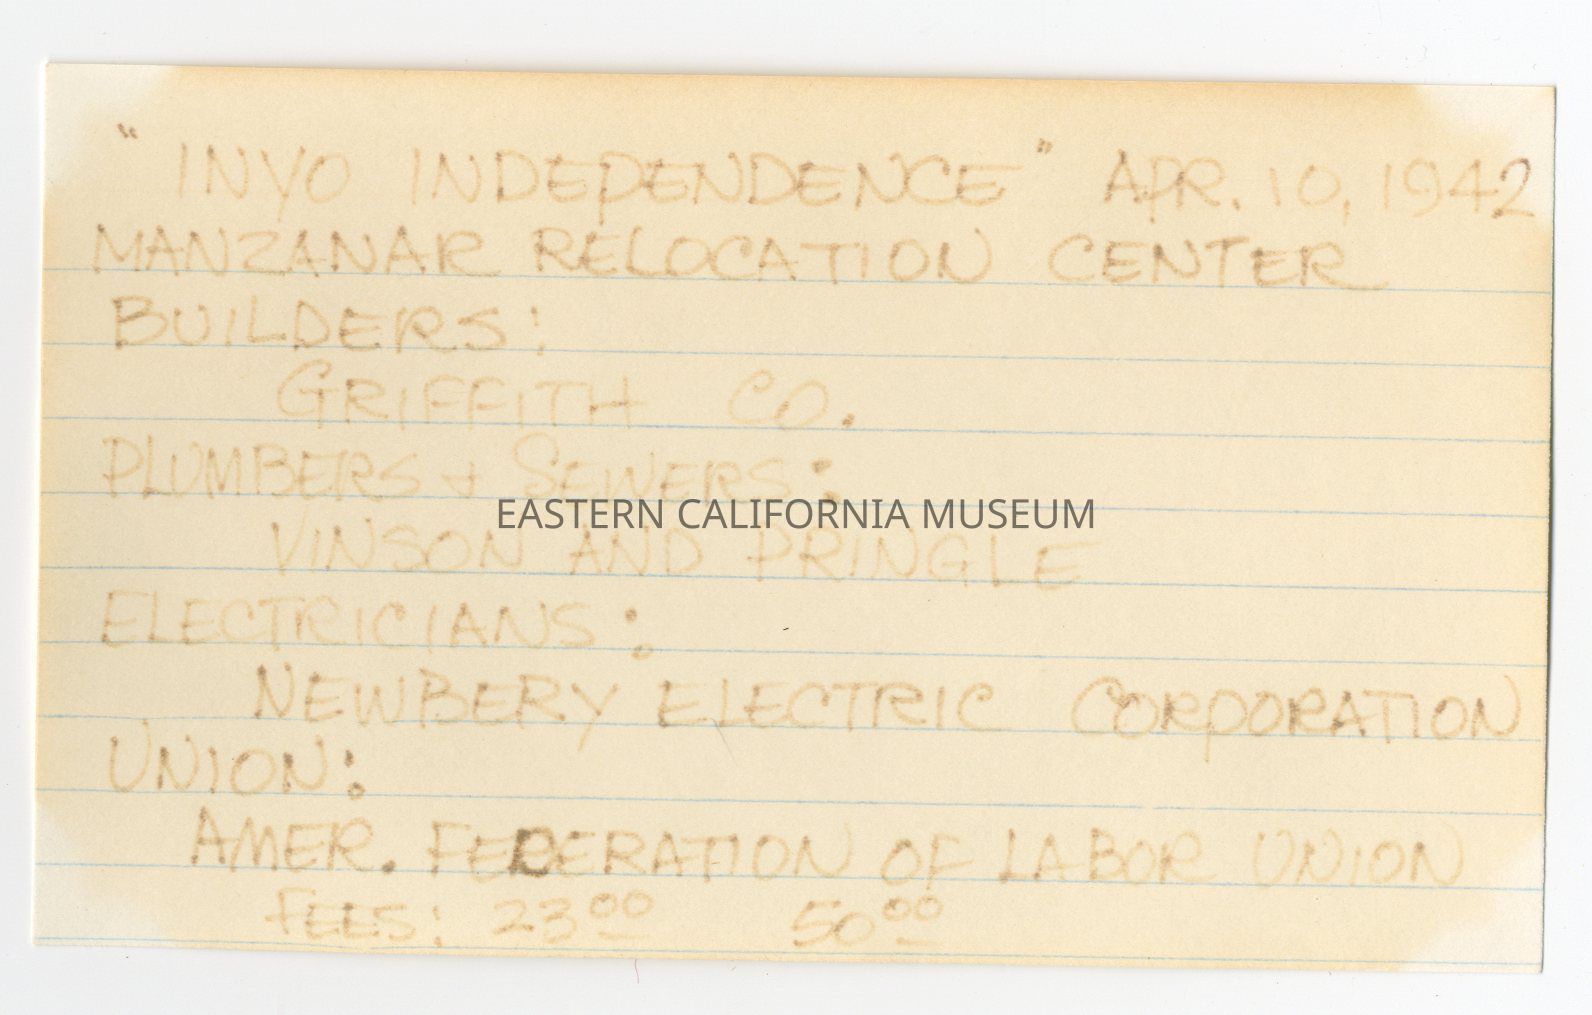 "INYO INDEPENDENCE" APR. 10, 1942
MANZANAR RELOCATION CENTER
BUILDERS:
GRIFFITH CO.
PLUMBERS + SEWERS:
EASTERN CALIFORNIA MUSEUM
VINSON AND PRINGLE
ELECTRICIANS:
NEWBERY ELECTRIC CORPORATION
UNION:
AMER. FEDERATION OF LABOR UNION
FEES: 2300 5000